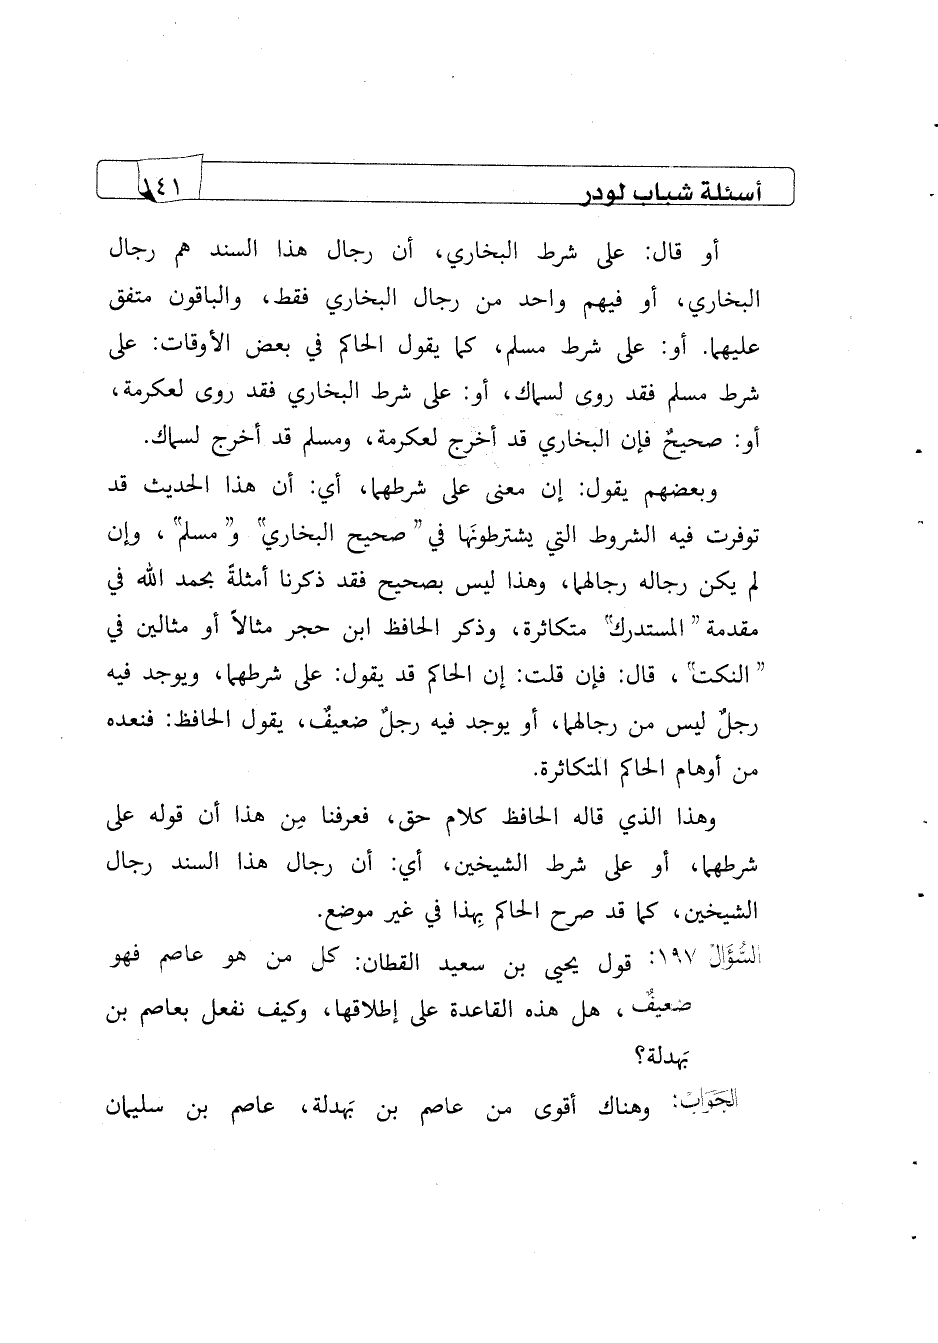 أسئلة شباب لودر ١٤١
أو قال: على شرط البخاري، أن رجال هذا السند هم رجال
البخاري، أو فيهم واحد من رجال البخاري فقط، والباقون متفق
عليهما. أو: على شرط مسلم، كما يقول الحاكم في بعض الأوقات: على
شرط مسلم فقد روى لسماك، أو: على شرط البخاري فقد روى لعكرمة،
أو: صحيحٌ فإن البخاري قد أخرج لعكرمة، ومسلم قد أخرج لسماك.
وبعضهم يقول: إن معنى على شرطهما، أي: أن هذا الحديث قد
توفرت فيه الشروط التي يشترطونَها في "صحيح البخاري" و"مسلم"، وإن
لم يكن رجاله رجالهما، وهذا ليس بصحيح فقد ذكرنا أمثلةً بحمد الله في
مقدمة "المستدرك" متكاثرة، وذكر الحافظ ابن حجر مثالاً أو مثالين في
"النكت"، قال: فإن قلت: إن الحاكم قد يقول: على شرطهما، ويوجد فيه
رجلٌ ليس من رجالهما، أو يوجد فيه رجلٌ ضعيفٌ، يقول الحافظ: فنعده
من أوهام الحاكم المتكاثرة.
وهذا الذي قاله الحافظ كلام حق، فعرفنا مِن هذا أن قوله على
شرطهما، أو على شرط الشيخين، أي: أن رجال هذا السند رجال
الشيخين، كما قد صرح الحاكم بِهذا في غير موضع.
السُّؤَالُ ١٩٧: قول يحيى بن سعيد القطان: كل من هو عاصم فهو
ضعيفٌ، هل هذه القاعدة على إطلاقها، وكيف نفعل بعاصم بن
بَهدلة؟
الجَوَابُ: وهناك أقوى من عاصم بن بَهدلة، عاصم بن سليمان